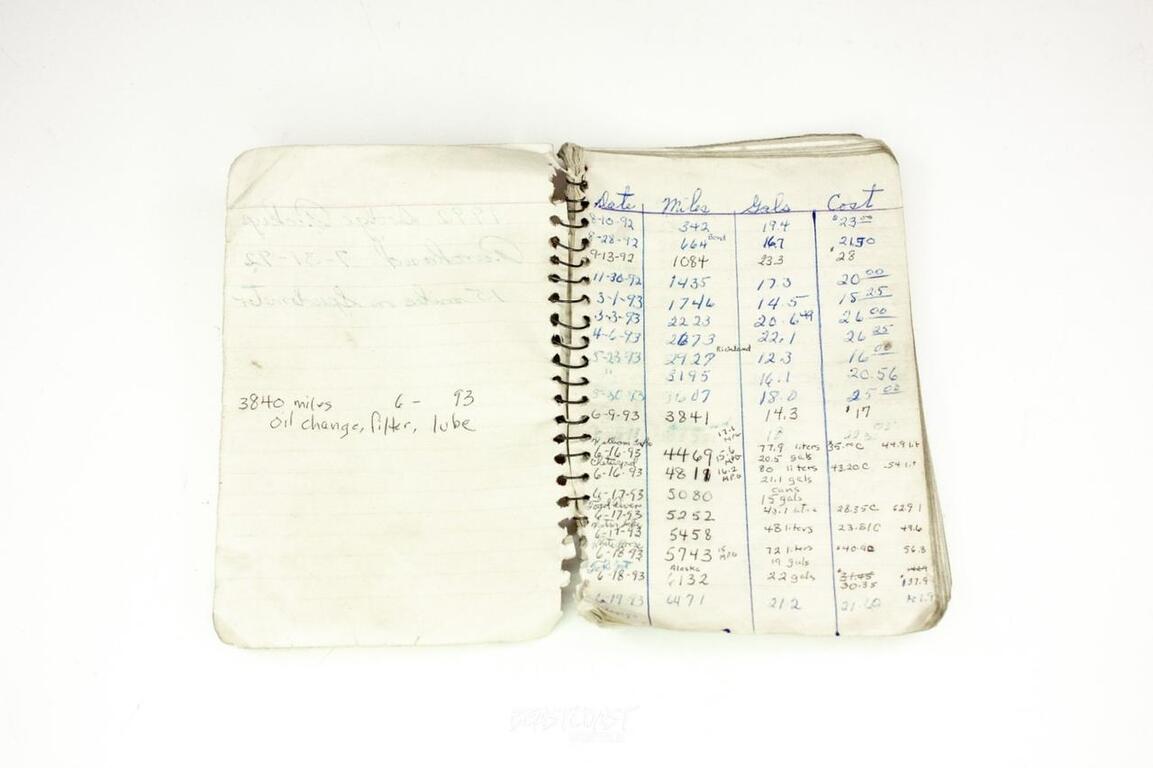 3840 miles 6 - 93
Oil change, filter, lube
Date Miles Gals Cost
8-10-92 342 19.4 $23.00
8-28-92 664 Bend 16.7 21.50
9-13-92 1084 23.3 $28
11-30-92 1435 17.3 20.00
3-1-93 1746 14.5 15.25
3-3-93 2223 20.649 26.00
4-6-93 2673 22.1 26.25
5-23-93 2927 Richland 12.3 16.00
" 3195 16.1 20.56
5-30-93 3607 18.0 25.00
6-9-93 3841 14.3 $17
17.6 MPG 18
6-16-93 4469 15.6 MPG 77.9 liters 35.00C 44.9 lit
20.5 gals
Chetwynd
6-16-93 4811 16.2 MPG 80 liters 43.20C .54 lit
21.1 gals
6-17-93 5080 cans
15 gals
6-17-93 5252 28.35C 629
6-17-93 5458 48 liters 23.81C 49.6
White Horse
6-18-93 5743 15 MPG 72 liters $40.90 56.8
19 gals
Alaska
6-18-93 6132 22 gals 30.35 137.9
6-19-93 6471 21.2 21.60
BEASTCOAST